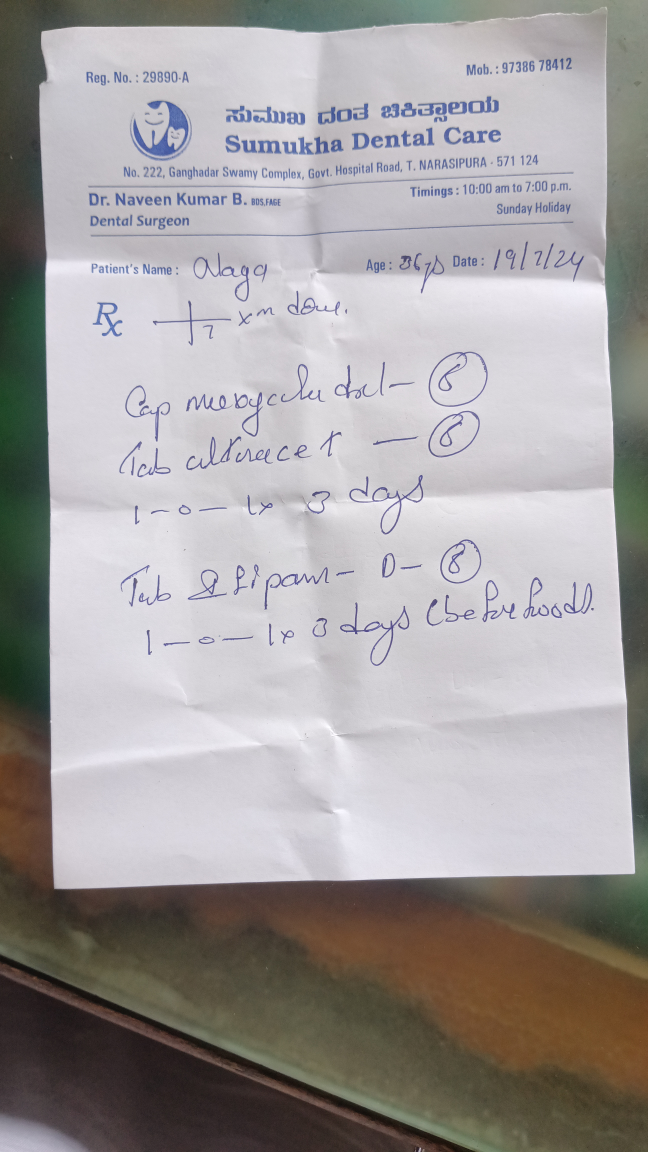 Reg. No. : 29890-A
Mob. : 97386 78412
ಸುಮುಖ ದಂತ ಚಿಕಿತ್ಸಾಲಯ
Sumukha Dental Care
No. 222, Ganghadar Swamy Complex, Govt. Hospital Road, T. NARASIPURA - 571 124
Dr. Naveen Kumar B. BDS,FAGE
Timings : 10:00 am to 7:00 p.m.
Dental Surgeon
Sunday Holiday
Patient's Name : Age : 36 Date : 19/7/24
Rx 7 xn done.
Cap
Tab
1-0-1x 3 days
Tab - D-
1-0-1x 3 days (before food).